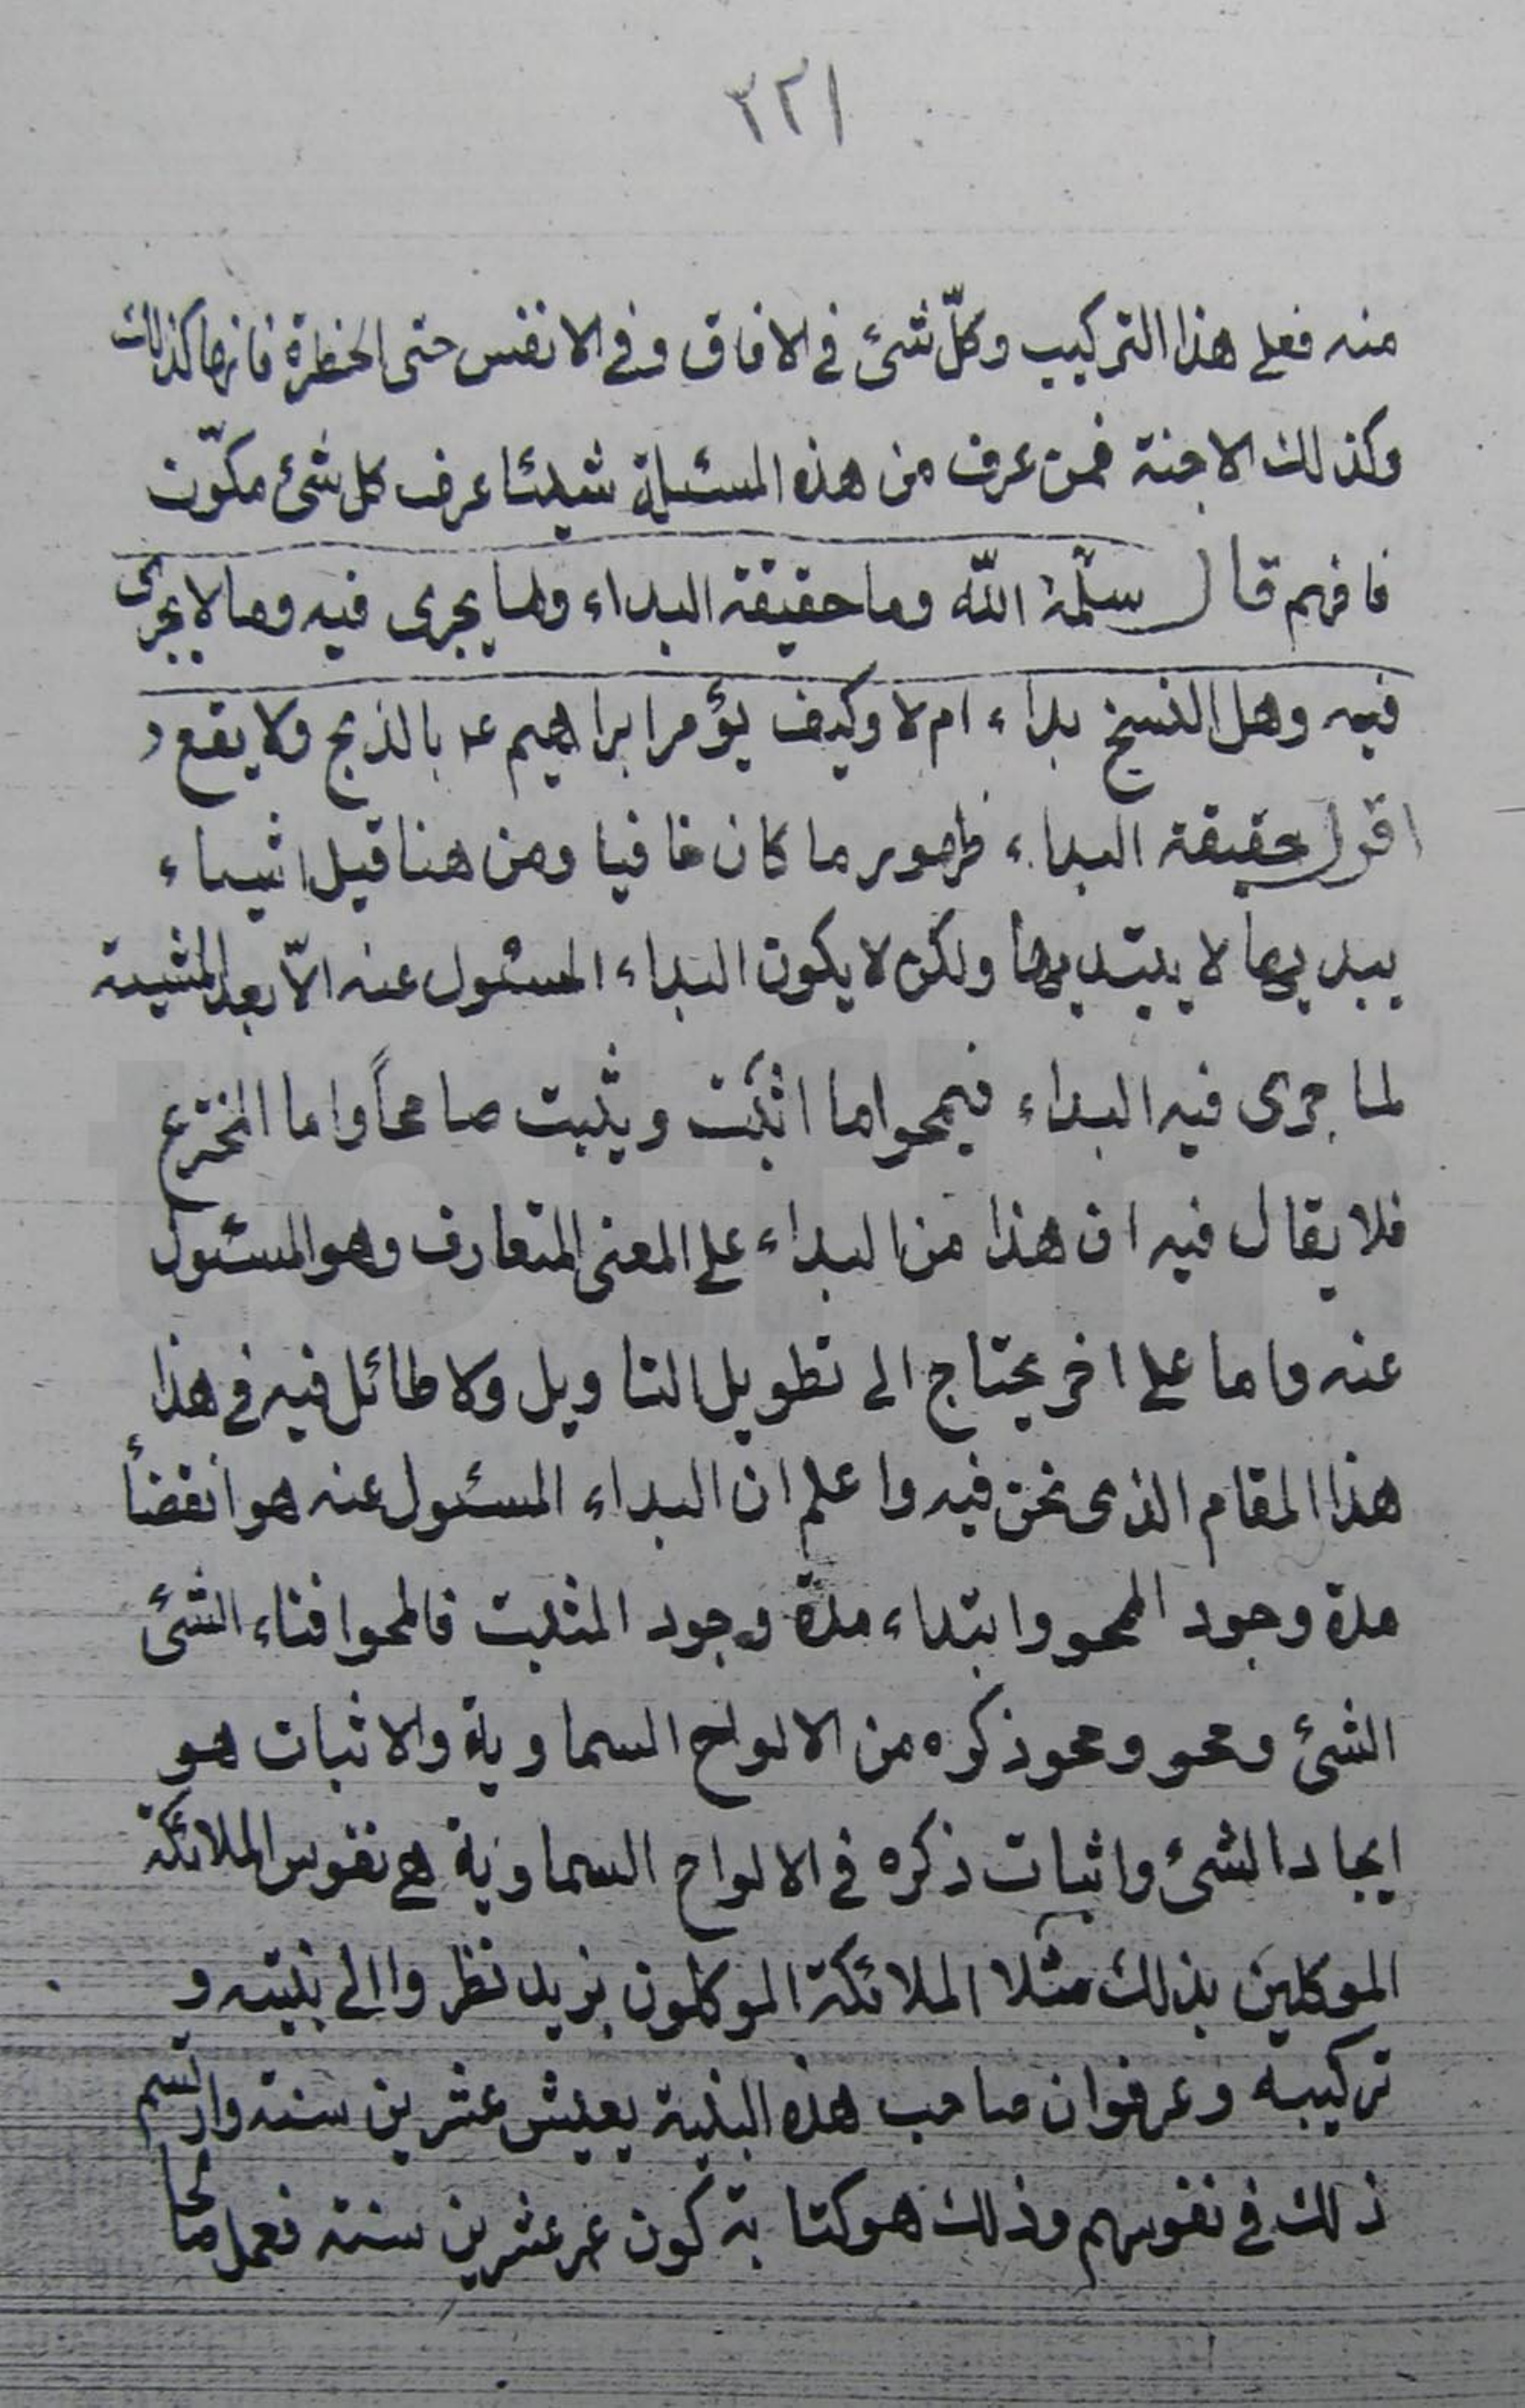 ٢٢١
منه فعلى هذا التركيب وكلّ شئ في الافاق وفي الانفس حتى الخطرة فانها كذلك
وكذلك الاجنة فمن عرف من هذه المسئلة شيئا عرف كل شئ مكوّن
فافهم قال سلّمه اللّه وما حقيقة البداء وما يجرى فيه وما لا يجرى
فيه وهل النسخ بداء ام لا وكيف يؤمر ابراهيم ع بالذبح ولا يقع و
اقول حقيقة البداء ظهور ما كان خافيا ومن هنا قيل اشياء
يبديها لا يبتديها ولكن لا يكون البداء المسئول عنه الاّ بعد المشية
لما جرى فيه البداء فيمحوا ما اثبت ويثبت ما محاً واما المخترع
فلا يقال فيه ان هذا من البداء على المعنى المتعارف وهو المسئول
عنه واما على اخر يحتاج الى تطويل التاويل ولا طائل فيه في هذا
هذا المقام الذى نحن فيه واعلم ان البداء المسئول عنه هو انقضأ
مدة وجود المحو وابتداء مدة وجود المثبت فالمحو افناء الشئ
الشئ ومحو ومحو ذكره من الالواح السماوية والاثبات هو
ايجاد الشئ واثبات ذكره في الالواح السماوية هي نفوس الملائكة
الموكلين بذلك مثلا الملائكة الموكلون بزيد نظروا الى بنيته و
تركيبه وعرفوا ان صاحب هذه البنية يعيش عشرين سنة وارتسم
ذلك في نفوسهم وذلك هو كتابة كون عمر عشرين سنة فعمل